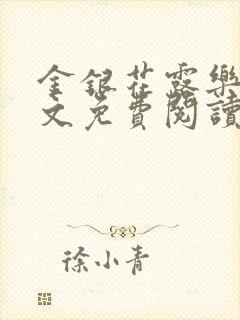 金銀花露樂
文免費閱讀
徐小青